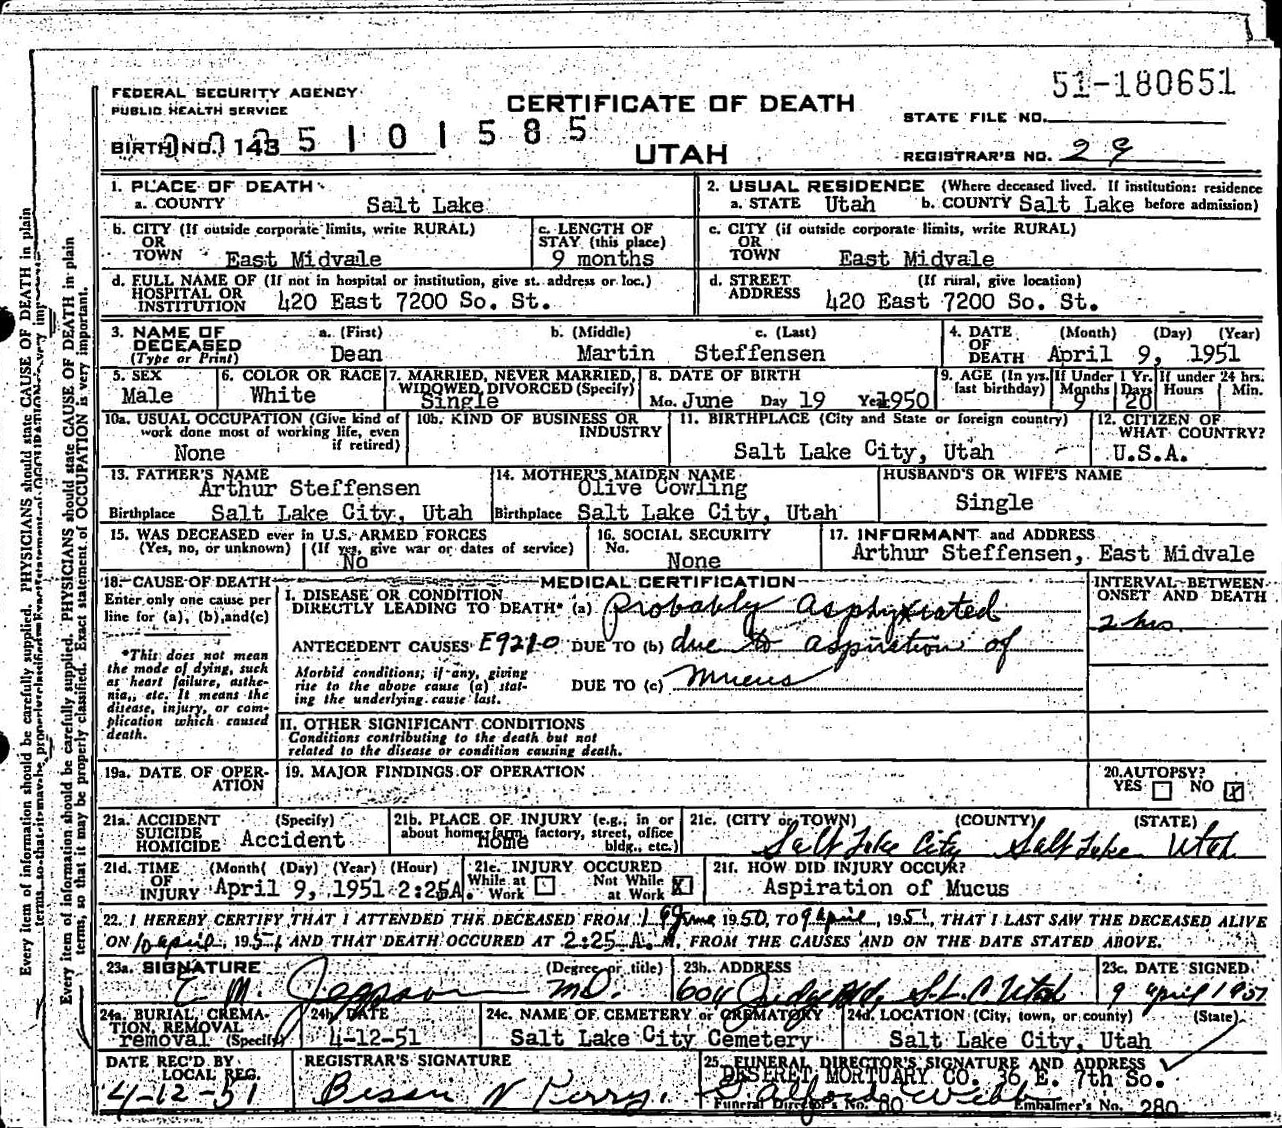 51-180651
FEDERAL SECURITY AGENCY
PUBLIC HEALTH SERVICE
CERTIFICATE OF DEATH
STATE FILE NO.
BIRTH NO. 143 5 1 0 1 5 8 5
UTAH
REGISTRAR'S NO. 29
1. PLACE OF DEATH
a. COUNTY Salt Lake
2. USUAL RESIDENCE (Where deceased lived. If institution: residence before admission)
a. STATE Utah b. COUNTY Salt Lake
b. CITY (If outside corporate limits, write RURAL)
OR
TOWN East Midvale
c. LENGTH OF
STAY (this place)
9 months
c. CITY (if outside corporate limits, write RURAL)
OR
TOWN East Midvale
d. FULL NAME OF (If not in hospital or institution, give st. address or loc.)
HOSPITAL OR
INSTITUTION 420 East 7200 So. St.
d. STREET (If rural, give location)
ADDRESS 420 East 7200 So. St.
3. NAME OF DECEASED (Type or Print)
a. (First) b. (Middle) c. (Last)
Dean Martin Steffensen
4. DATE OF DEATH (Month) (Day) (Year)
April 9, 1951
5. SEX
Male
6. COLOR OR RACE
White
7. MARRIED, NEVER MARRIED,
WIDOWED, DIVORCED (Specify)
Single
8. DATE OF BIRTH
Mo. June Day 19 Yr. 1950
9. AGE (In yrs. last birthday)
If Under 1 Yr. Months 9 Days 20
If under 24 hrs. Hours Min.
10a. USUAL OCCUPATION (Give kind of
work done most of working life, even
if retired)
None
10b. KIND OF BUSINESS OR
INDUSTRY
11. BIRTHPLACE (City and State or foreign country)
Salt Lake City, Utah
12. CITIZEN OF
WHAT COUNTRY?
U.S.A.
13. FATHER'S NAME
Arthur Steffensen
Birthplace Salt Lake City, Utah
14. MOTHER'S MAIDEN NAME
Olive Cowling
Birthplace Salt Lake City, Utah
HUSBAND'S OR WIFE'S NAME
Single
15. WAS DECEASED ever in U.S. ARMED FORCES
(Yes, no, or unknown) (If yes, give war or dates of service)
No
16. SOCIAL SECURITY
No.
None
17. INFORMANT and ADDRESS
Arthur Steffensen, East Midvale
18. CAUSE OF DEATH
Enter only one cause per
line for (a), (b), and (c)
*This does not mean
the mode of dying, such
as heart failure, asthe-
nia, etc. It means the
disease, injury, or com-
plication which caused
death.
MEDICAL CERTIFICATION
I. DISEASE OR CONDITION
DIRECTLY LEADING TO DEATH* (a) Probably asphyxiated
ANTECEDENT CAUSES E9210 DUE TO (b) due to aspiration of
Morbid conditions, if any, giving
rise to the above cause (a) stat-
ing the underlying cause last.
DUE TO (c) mucus
INTERVAL BETWEEN
ONSET AND DEATH
2 hrs
II. OTHER SIGNIFICANT CONDITIONS
Conditions contributing to the death but not
related to the disease or condition causing death.
19a. DATE OF OPER-
ATION
19. MAJOR FINDINGS OF OPERATION
20. AUTOPSY?
YES NO X
21a. ACCIDENT (Specify)
SUICIDE
HOMICIDE Accident
21b. PLACE OF INJURY (e.g., in or
about home, farm, factory, street, office
bldg., etc.)
Home
21c. (CITY or TOWN) (COUNTY) (STATE)
Salt Lake City Salt Lake Utah
21d. TIME (Month) (Day) (Year) (Hour)
OF
INJURY April 9, 1951 2:25A.
21e. INJURY OCCURED
While at Work Not While at Work X
21f. HOW DID INJURY OCCUR?
Aspiration of Mucus
22. I HEREBY CERTIFY THAT I ATTENDED THE DECEASED FROM June 1950, TO 9 April, 1951, THAT I LAST SAW THE DECEASED ALIVE
ON 10 April, 1951 AND THAT DEATH OCCURED AT 2:25 A.M. FROM THE CAUSES AND ON THE DATE STATED ABOVE.
23a. SIGNATURE (Degree or title)
C M. Jeppson MD.
23b. ADDRESS
604 Judge Bld. S.L.C. Utah
23c. DATE SIGNED
9 April 1951
24a. BURIAL, CREMA-
TION, REMOVAL
removal (Specify)
24b. DATE
4-12-51
24c. NAME OF CEMETERY or CREMATORY
Salt Lake City Cemetery
24d. LOCATION (City, town, or county) (State)
Salt Lake City, Utah
DATE REC'D BY
LOCAL REG.
4-12-51
REGISTRAR'S SIGNATURE
N Perry.
25. FUNERAL DIRECTOR'S SIGNATURE AND ADDRESS
DESERET MORTUARY CO. 36 E. 7th So.
Webb
Funeral Director's No. 80 Embalmer's No. 280
Every item of information should be carefully supplied. PHYSICIANS should state CAUSE OF DEATH in plain
Every item of information should be carefully supplied. PHYSICIANS should state CAUSE OF DEATH in plain
terms, so that it may be properly classified. Exact statement of OCCUPATION is very important.